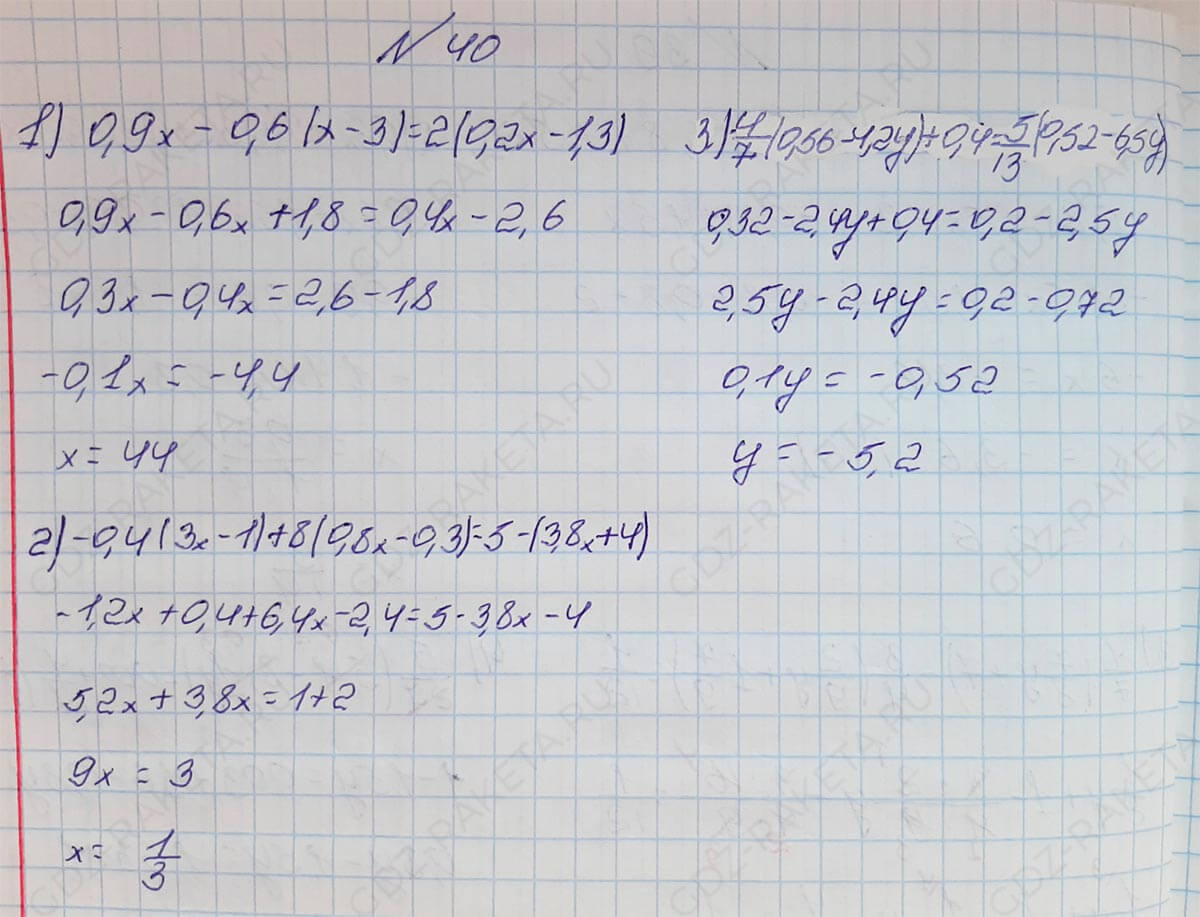 № 40
1) 0,9x - 0,6(x - 3) = 2(0,2x - 1,3)
0,9x - 0,6x + 1,8 = 0,4x - 2,6
0,3x - 0,4x = 2,6 - 1,8
-0,1x = -4,4
x = 44
2) -0,4(3x - 1) + 8(0,8x - 0,3) = 5 - (3,8x + 4)
-1,2x + 0,4 + 6,4x - 2,4 = 5 - 3,8x - 4
5,2x + 3,8x = 1 + 2
9x = 3
x = 1/3
3) 4/7(0,56 - 4,2y) + 0,4 = 5/13(0,52 - 6,5y)
0,32 - 2,4y + 0,4 = 0,2 - 2,5y
2,5y - 2,4y = 0,2 - 0,72
0,1y = -0,52
y = -5,2
GDZ-RAKETA.RU